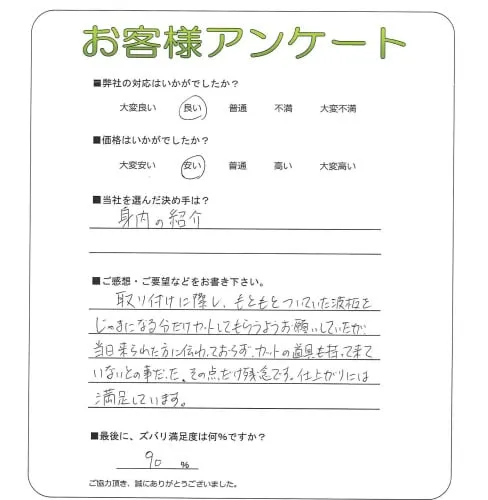 お客様アンケート
■弊社の対応はいかがでしたか？
大変良い 良い 普通 不満 大変不満
■価格はいかがでしたか？
大変安い 安い 普通 高い 大変高い
■当社を選んだ決め手は？
身内の紹介
■ご感想・ご要望などをお書き下さい。
取り付けに際し、もともとついていた波板を
じゃまになる分だけカットしてもらうようお願いしていたが、
当日来られた方に伝わっておらず、カットの道具も持って来て
いないとの事だった、その点だけ残念です。仕上がりには
満足しています。
■最後に、ズバリ満足度は何%ですか？
90 %
ご協力頂き、誠にありがとうございました。